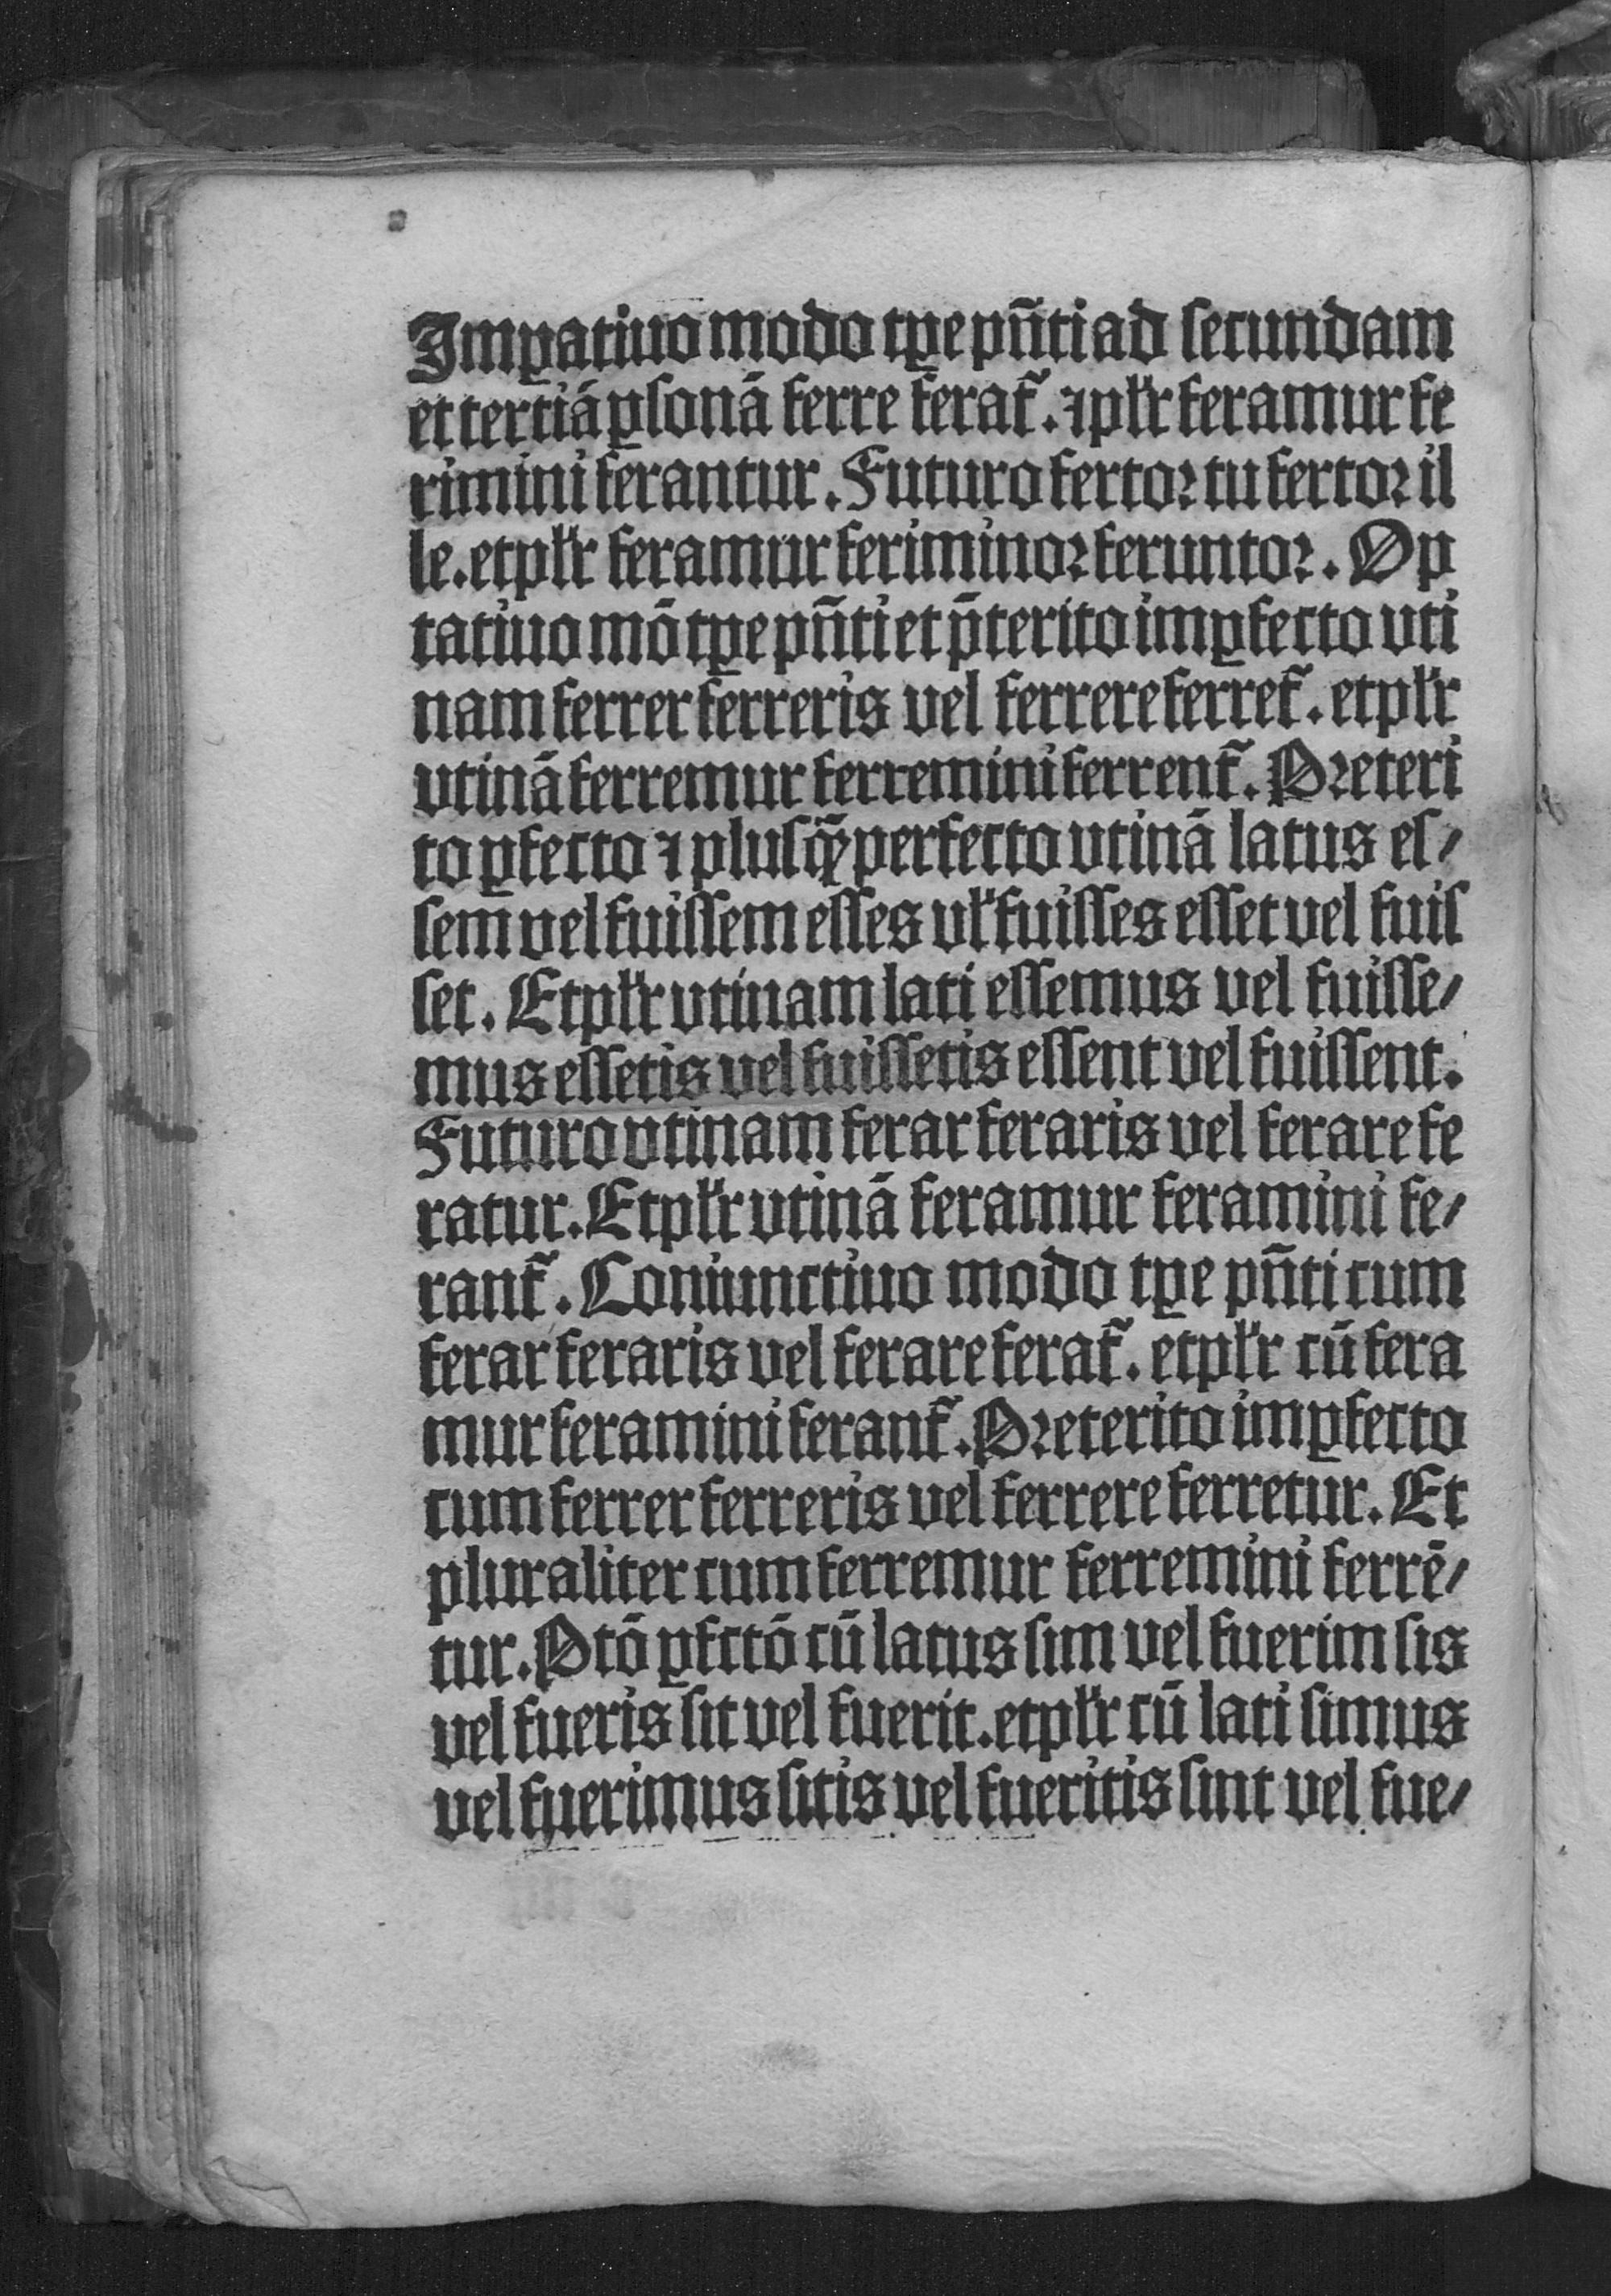 Imꝑatiuo modo tꝑe pñti ad ſecundam
et tertiā ꝑſonā ferre ferat᷑. ⁊ pl'r feramur fe
rimini ferantur. Futuro fertoꝛ tu fertoꝛ il
le. et pl'r feramur feriminoꝛ feruntoꝛ. Op
tatiuo mō tꝑe pñti et p̄terito imꝑfecto vti
nam ferrer ferreris vel ferrere ferret᷑. et pl'r
vtinā ferremur ferremini ferrent᷑. Pꝛeteri
to ꝑfecto ⁊ pluſꝙ̄perfecto vtinā latus eſ⸗
ſem vel fuiſſem eſſes vl' fuiſſes eſſet vel fuiſ
ſet. Et pl'r vtinam lati eſſemus vel fuiſſe⸗
mus eſſetis vel fuiſſetis eſſent vel fuiſſent.
Futuro vtinam ferar feraris vel ferare fe
ratur. Et pl'r vtinā feramur feramini fe⸗
rant᷑. Coniunctiuo modo tꝑe pñti cum
ferar feraris vel ferare ferat᷑. et pl'r cū fera
mur feramini ferant᷑. Pꝛeterito imꝑfecto
cum ferrer ferreris vel ferrere ferretur. Et
pluraliter cum ferremur ferremini ferrē⸗
tur. Ptō ꝑfctō cū latus ſim vel fuerim ſis
vel fueris ſit vel fuerit. et pl'r cū lati ſimus
vel fuerimus ſitis vel fueritis ſint vel fue⸗